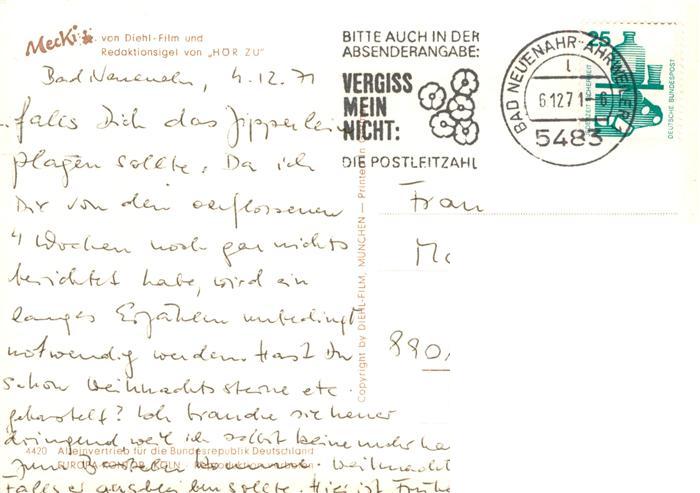 Mecki
von Diehl-Film und
Redaktionsigel von „HÖR ZU"
BITTE AUCH IN DER
ABSENDERANGABE:
VERGISS
MEIN
NICHT:
DIE POSTLEITZAHL
BAD NEUENAHR-AHRWEILER 1
6.12.71-8
5483
25
DEUTSCHE BUNDESPOST
Bad Neuenahr, 4.12.71
..falls Dich das Zipperlein
plagen sollte. Da ich
Dir von den verflossenen
4 Wochen noch gar nichts
berichtet habe, wird ein
langes Erzählen unbedingt
notwendig werden. Hast Du
schon Weihnachtssterne etc.
gebastelt? Ich brauche sie heuer
dringend weil ich selbst keine mehr ha
zum Weihnacht
Falls er ausbleiben sollte. Hier ist Frühe
Frau
880
Copyright by DIEHL-FILM, MÜNCHEN — Printed in
4420 Alleinvertrieb für die Bundesrepublik Deutschland
KÖLN